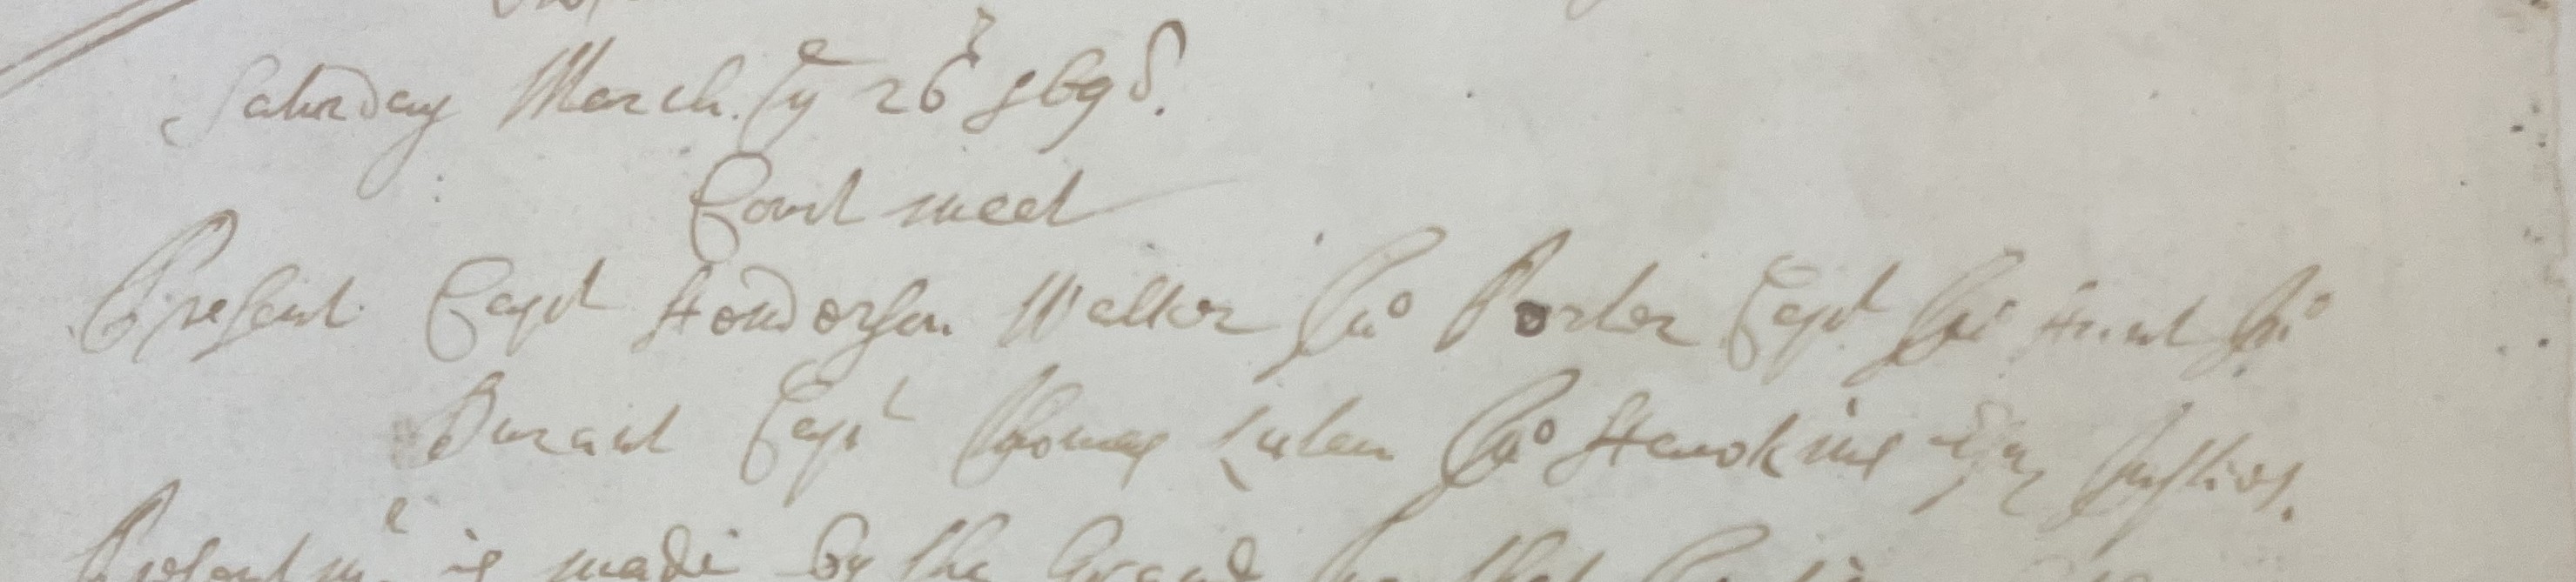 Saturday March. ye 26th 1698.
Court meet
Present Capt Henderson Walker Jno Porter Capt Jno Hunt Jno
Durant Capt Thomas Luten Jno Hawkins Esqrs Justices.
Presentmt is made by the Grand Jury that